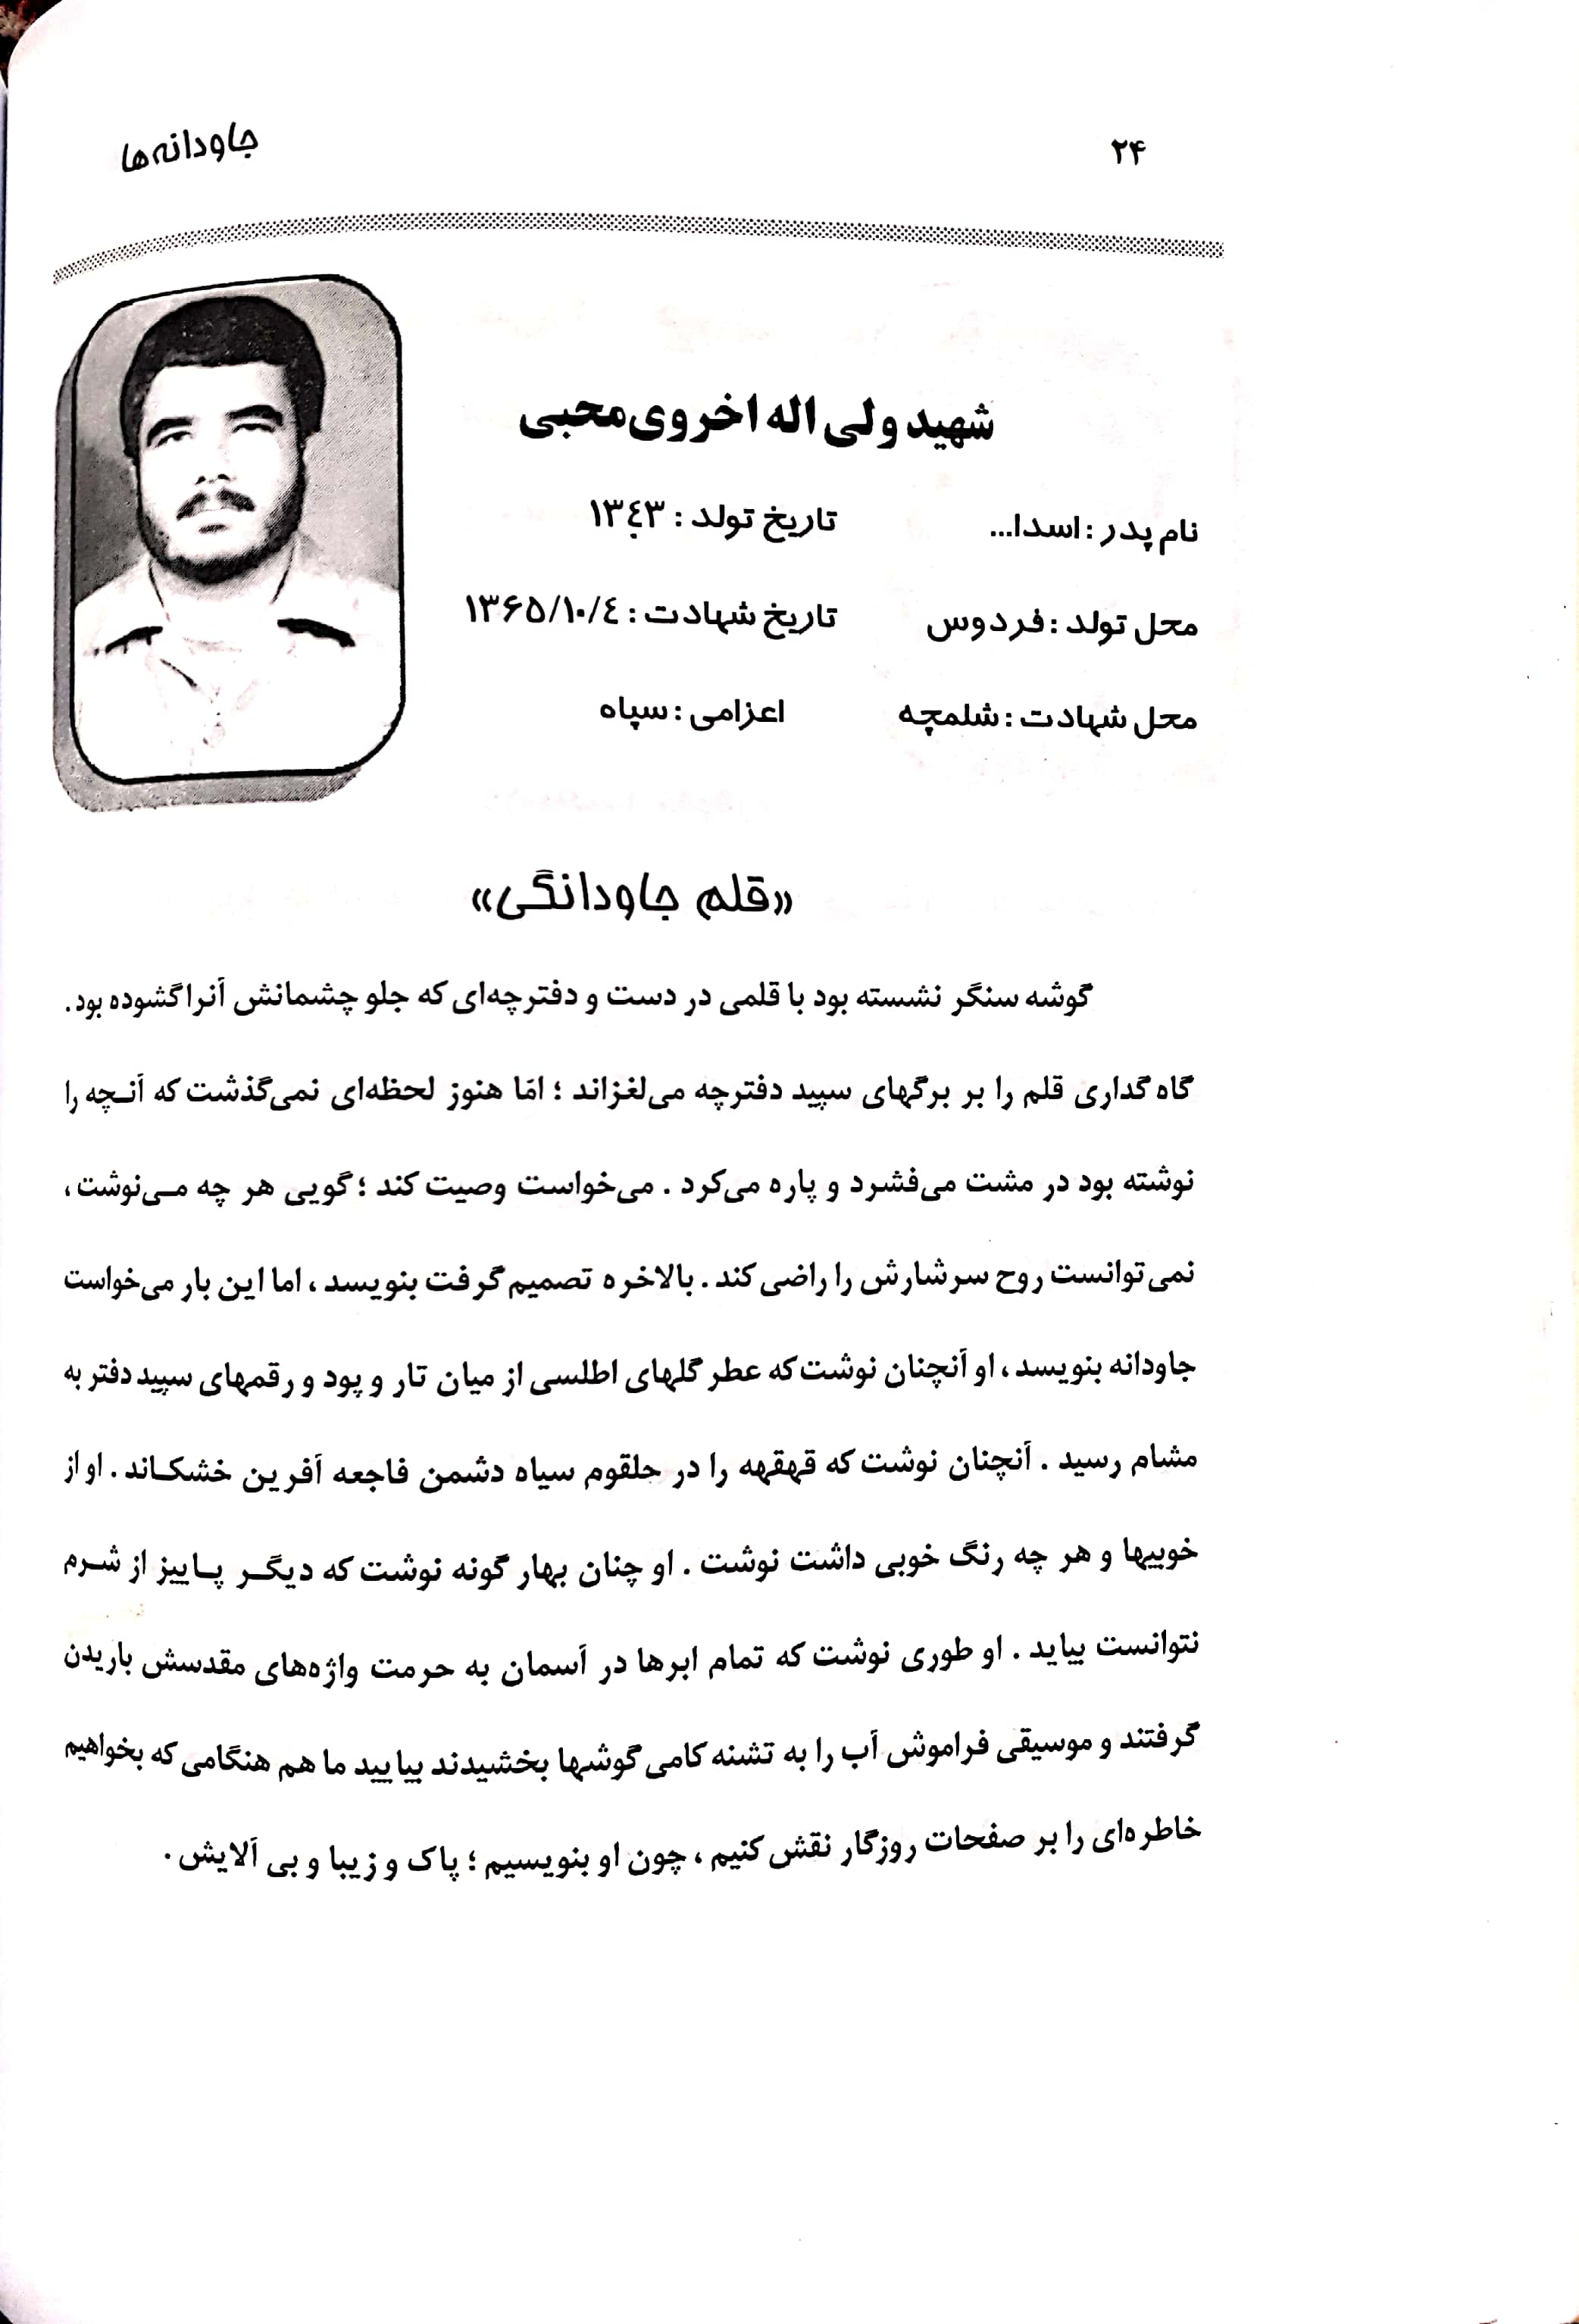 ۲۴
جاودانه‌ها
شهید ولی اله اخروی محبی
نام پدر : اسدا...
تاریخ تولد : ۱۳٤۳
محل تولد : فردوس
تاریخ شهادت : ۱۳۶۵/۱۰/٤
محل شهادت : شلمچه
اعزامی : سپاه
«قلم جاودانگی»
گوشه سنگر نشسته بود با قلمی در دست و دفترچه‌ای که جلو چشمانش آنرا گشوده بود.
گاه گداری قلم را بر برگهای سپید دفترچه می‌لغزاند ؛ امّا هنوز لحظه‌ای نمی‌گذشت که آنـچه را
نوشته بود در مشت می‌فشرد و پاره می‌کرد . می‌خواست وصیت کند ؛ گویی هر چه مـی‌نوشت ،
نمی‌توانست روح سرشارش را راضی کند . بالاخره تصمیم گرفت بنویسد ، اما این بار می‌خواست
جاودانه بنویسد ، او آنچنان نوشت که عطر گلهای اطلسی از میان تار و پود و رقمهای سپید دفتر به
مشام رسید . آنچنان نوشت که قهقهه را در حلقوم سیاه دشمن فاجعه آفرین خشکـاند . او از
خوبیها و هر چه رنگ خوبی داشت نوشت . او چنان بهار گونه نوشت که دیگـر پـاییز از شـرم
نتوانست بیاید . او طوری نوشت که تمام ابرها در آسمان به حرمت واژه‌های مقدسش باریدن
گرفتند و موسیقی فراموش آب را به تشنه کامی گوشها بخشیدند بیایید ما هم هنگامی که بخواهیم
خاطره‌ای را بر صفحات روزگار نقش کنیم ، چون او بنویسیم ؛ پاک و زیبا و بی آلایش .